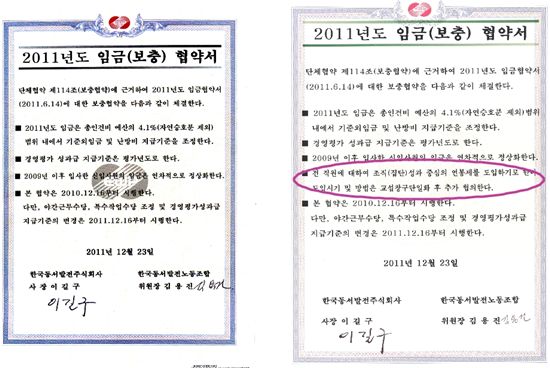 2011년도 임금(보충) 협약서
단체협약 제114조(보충협약)에 근거하여 2011년도 임금협약서
(2011.6.14)에 대한 보충협약을 다음과 같이 체결한다.
■ 2011년도 임금은 총인건비 예산의 4.1%(자연승호분 제외)
범위 내에서 기준외임금 및 난방비 지급기준을 조정한다.
■ 경영평가 성과급 지급기준은 평가년도로 한다.
■ 2009년 이후 입사한 신입사원의 임금은 연차적으로 정상화한다.
■ 본 협약은 2010.12.16부터 시행한다.
다만, 야간근무수당, 특수작업수당 조정 및 경영평가성과급
지급기준의 변경은 2011.12.16부터 시행한다.
2011년 12월 23일
한국동서발전주식회사 한국동서발전노동조합
사 장 이 길 구 위원장 김 용 진
이길구
2011년도 임금(보충) 협약서
단체협약 제114조(보충협약)에 근거하여 2011년도 임금협약서
(2011.6.14)에 대한 보충협약을 다음과 같이 체결한다.
■ 2011년도 임금은 총인건비 예산의 4.1%(자연승호분 제외)범위
내에서 기준외임금 및 난방비 지급기준을 조정한다.
■ 경영평가 성과급 지급기준은 평가년도로 한다.
■ 2009년 이후 입사한 신입사원의 임금은 연차적으로 정상화한다.
■ 전 직원에 대하여 조직(집단)성과 중심의 연봉제를 도입하기로 한다
도입시기 및 방법은 교섭창구단일화 후 추가 협의한다.
■ 본 협약은 2010.12.16부터 시행한다.
다만, 야간근무수당, 특수작업수당 조정 및 경영평가성과급
지급기준의 변경은 2011.12.16부터 시행한다.
2011년 12월 23일
한국동서발전주식회사 한국동서발전노동조합
사 장 이 길 구 위원장 김 용 진
이길구